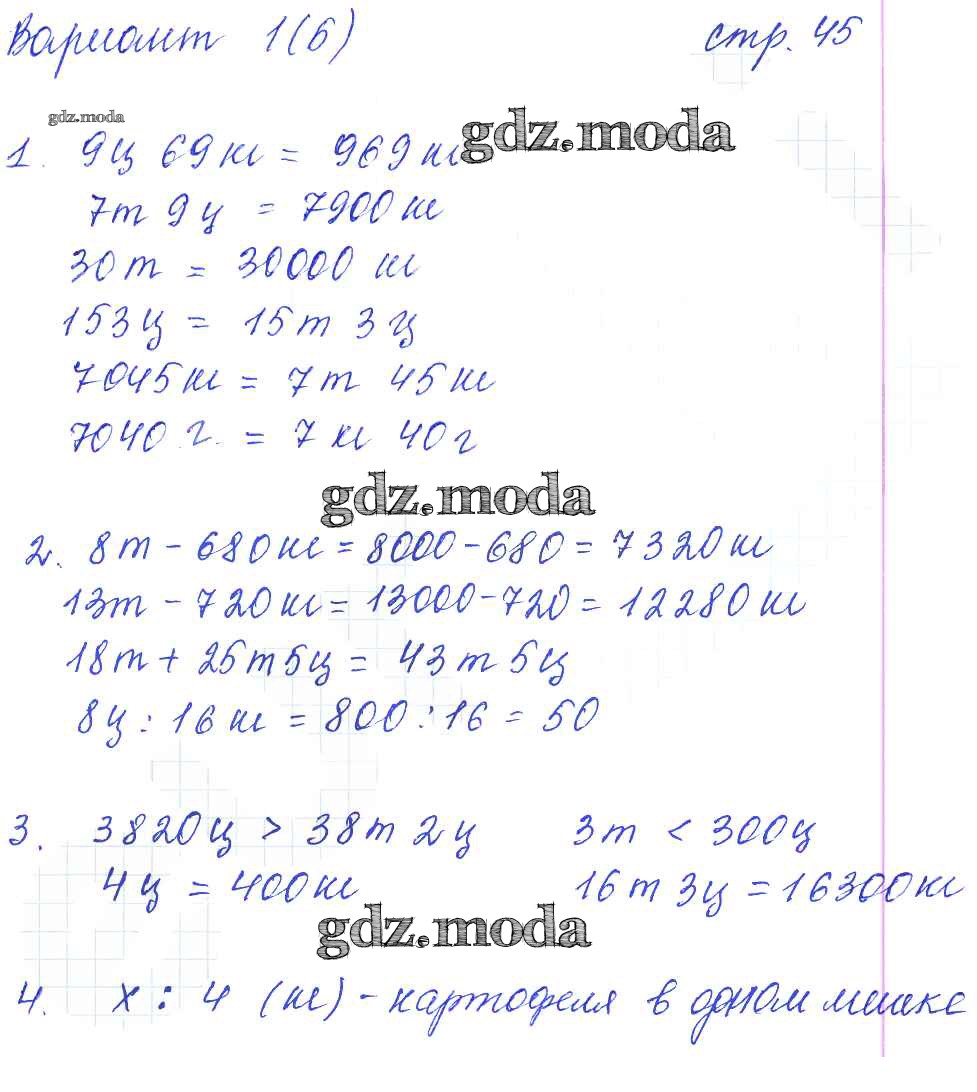 Вариант 1(6) стр. 45
gdz.moda
1. 9ц 69 кг = 969 кг gdz.moda
7т 9 ц = 7900 кг
30 т = 30000 кг
153 ц = 15 т 3 ц
7045 кг = 7 т 45 кг
7040 г. = 7 кг 40 г
gdz.moda
2. 8 т - 680 кг = 8000 - 680 = 7320 кг
13 т - 720 кг = 13000 - 720 = 12280 кг
18 т + 25 т 5 ц = 43 т 5 ц
8 ц : 16 кг = 800 : 16 = 50
3. 3820 ц > 38 т 2 ц 3 т < 300 ц
4 ц = 400 кг 16 т 3 ц = 16300 кг
gdz.moda
4. х : 4 (кг) - картофеля в одном мешке